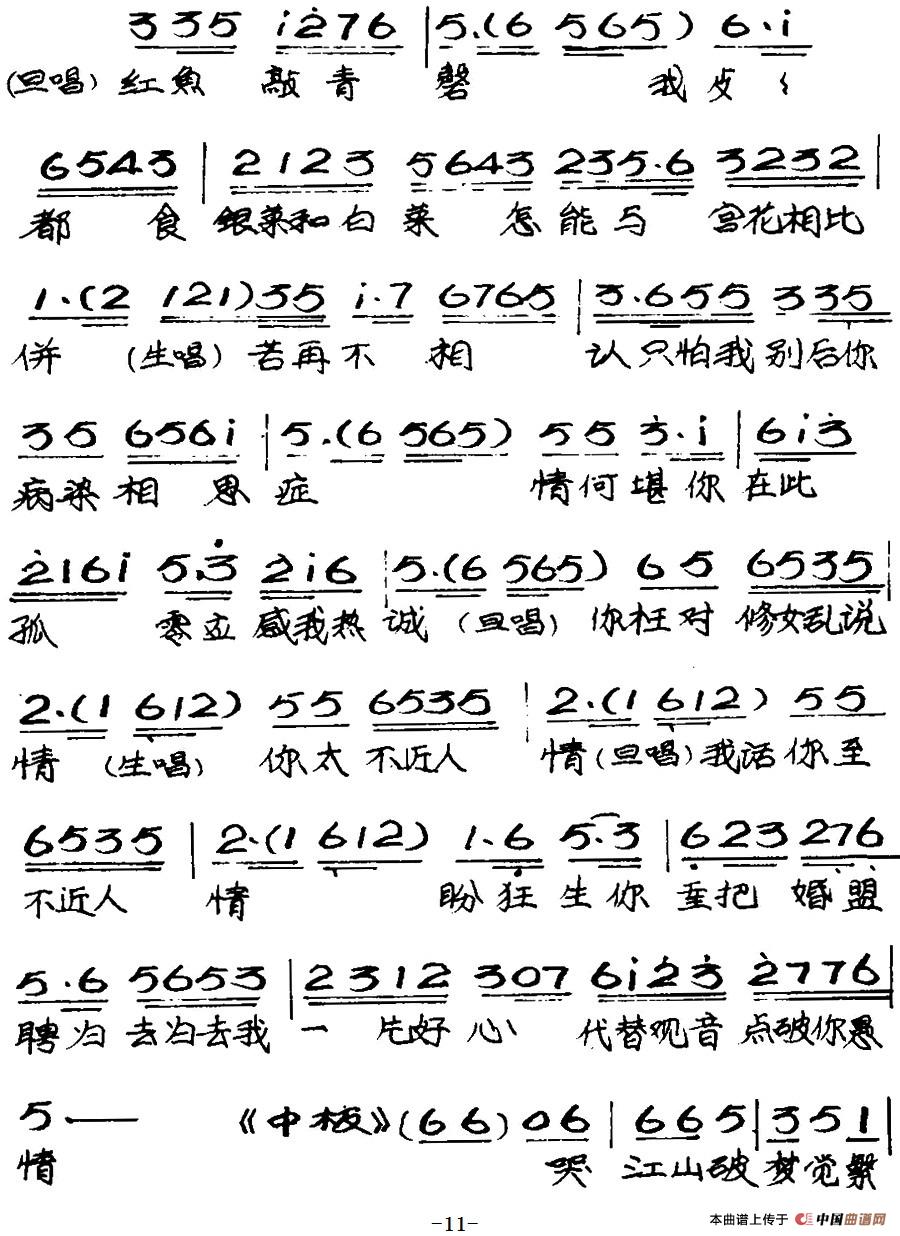 3 3 5 i 2 7 6 | 5.(6 5 6 5) 6.i
(旦唱) 红魚 敲青 磬 我皮〻
6 5 4 3 | 2 1 2 3 5 6 4 3 2 3 5.6 3 2 3 2 |
都 食 銀菜和白菜 怎能与 宫花相比
1.(2 1 2 1) 3 5 i.7 6 7 6 5 | 3.6 5 5 3 3 5
併 (生唱) 若再不 相 认只怕我别后你
3 5 6 5 6 i | 5.(6 5 6 5) 5 5 3.i | 6 i 3
病染相 思 症 情何堪你 在此
2 1 6 i 5.3 2 i 6 | 5.(6 5 6 5) 6 5 6 5 3 5 |
孤 零立 感我热诚 (旦唱) 你枉对 修女乱说
2.(1 6 1 2) 5 5 6 5 3 5 | 2.(1 6 1 2) 5 5
情 (生唱) 你太 不近人 情 (旦唱) 我话你至
6 5 3 5 | 2.(1 6 1 2) 1.6 5.3 | 6 2 3 2 7 6
不近人 情 盼狂生你 垂把 婚盟
5.6 5 6 5 3 | 2 3 1 2 3 0 7 6 i 2 3 2 7 7 6 |
聘归 去归去我 一 片好心 代替观音 点破你愚
5 — 《中板》(6 6) 0 6 | 6 6 5 | 3 5 1 |
情 哭 江山破 梦觉繁
-11-
本曲谱上传于 中国曲谱网